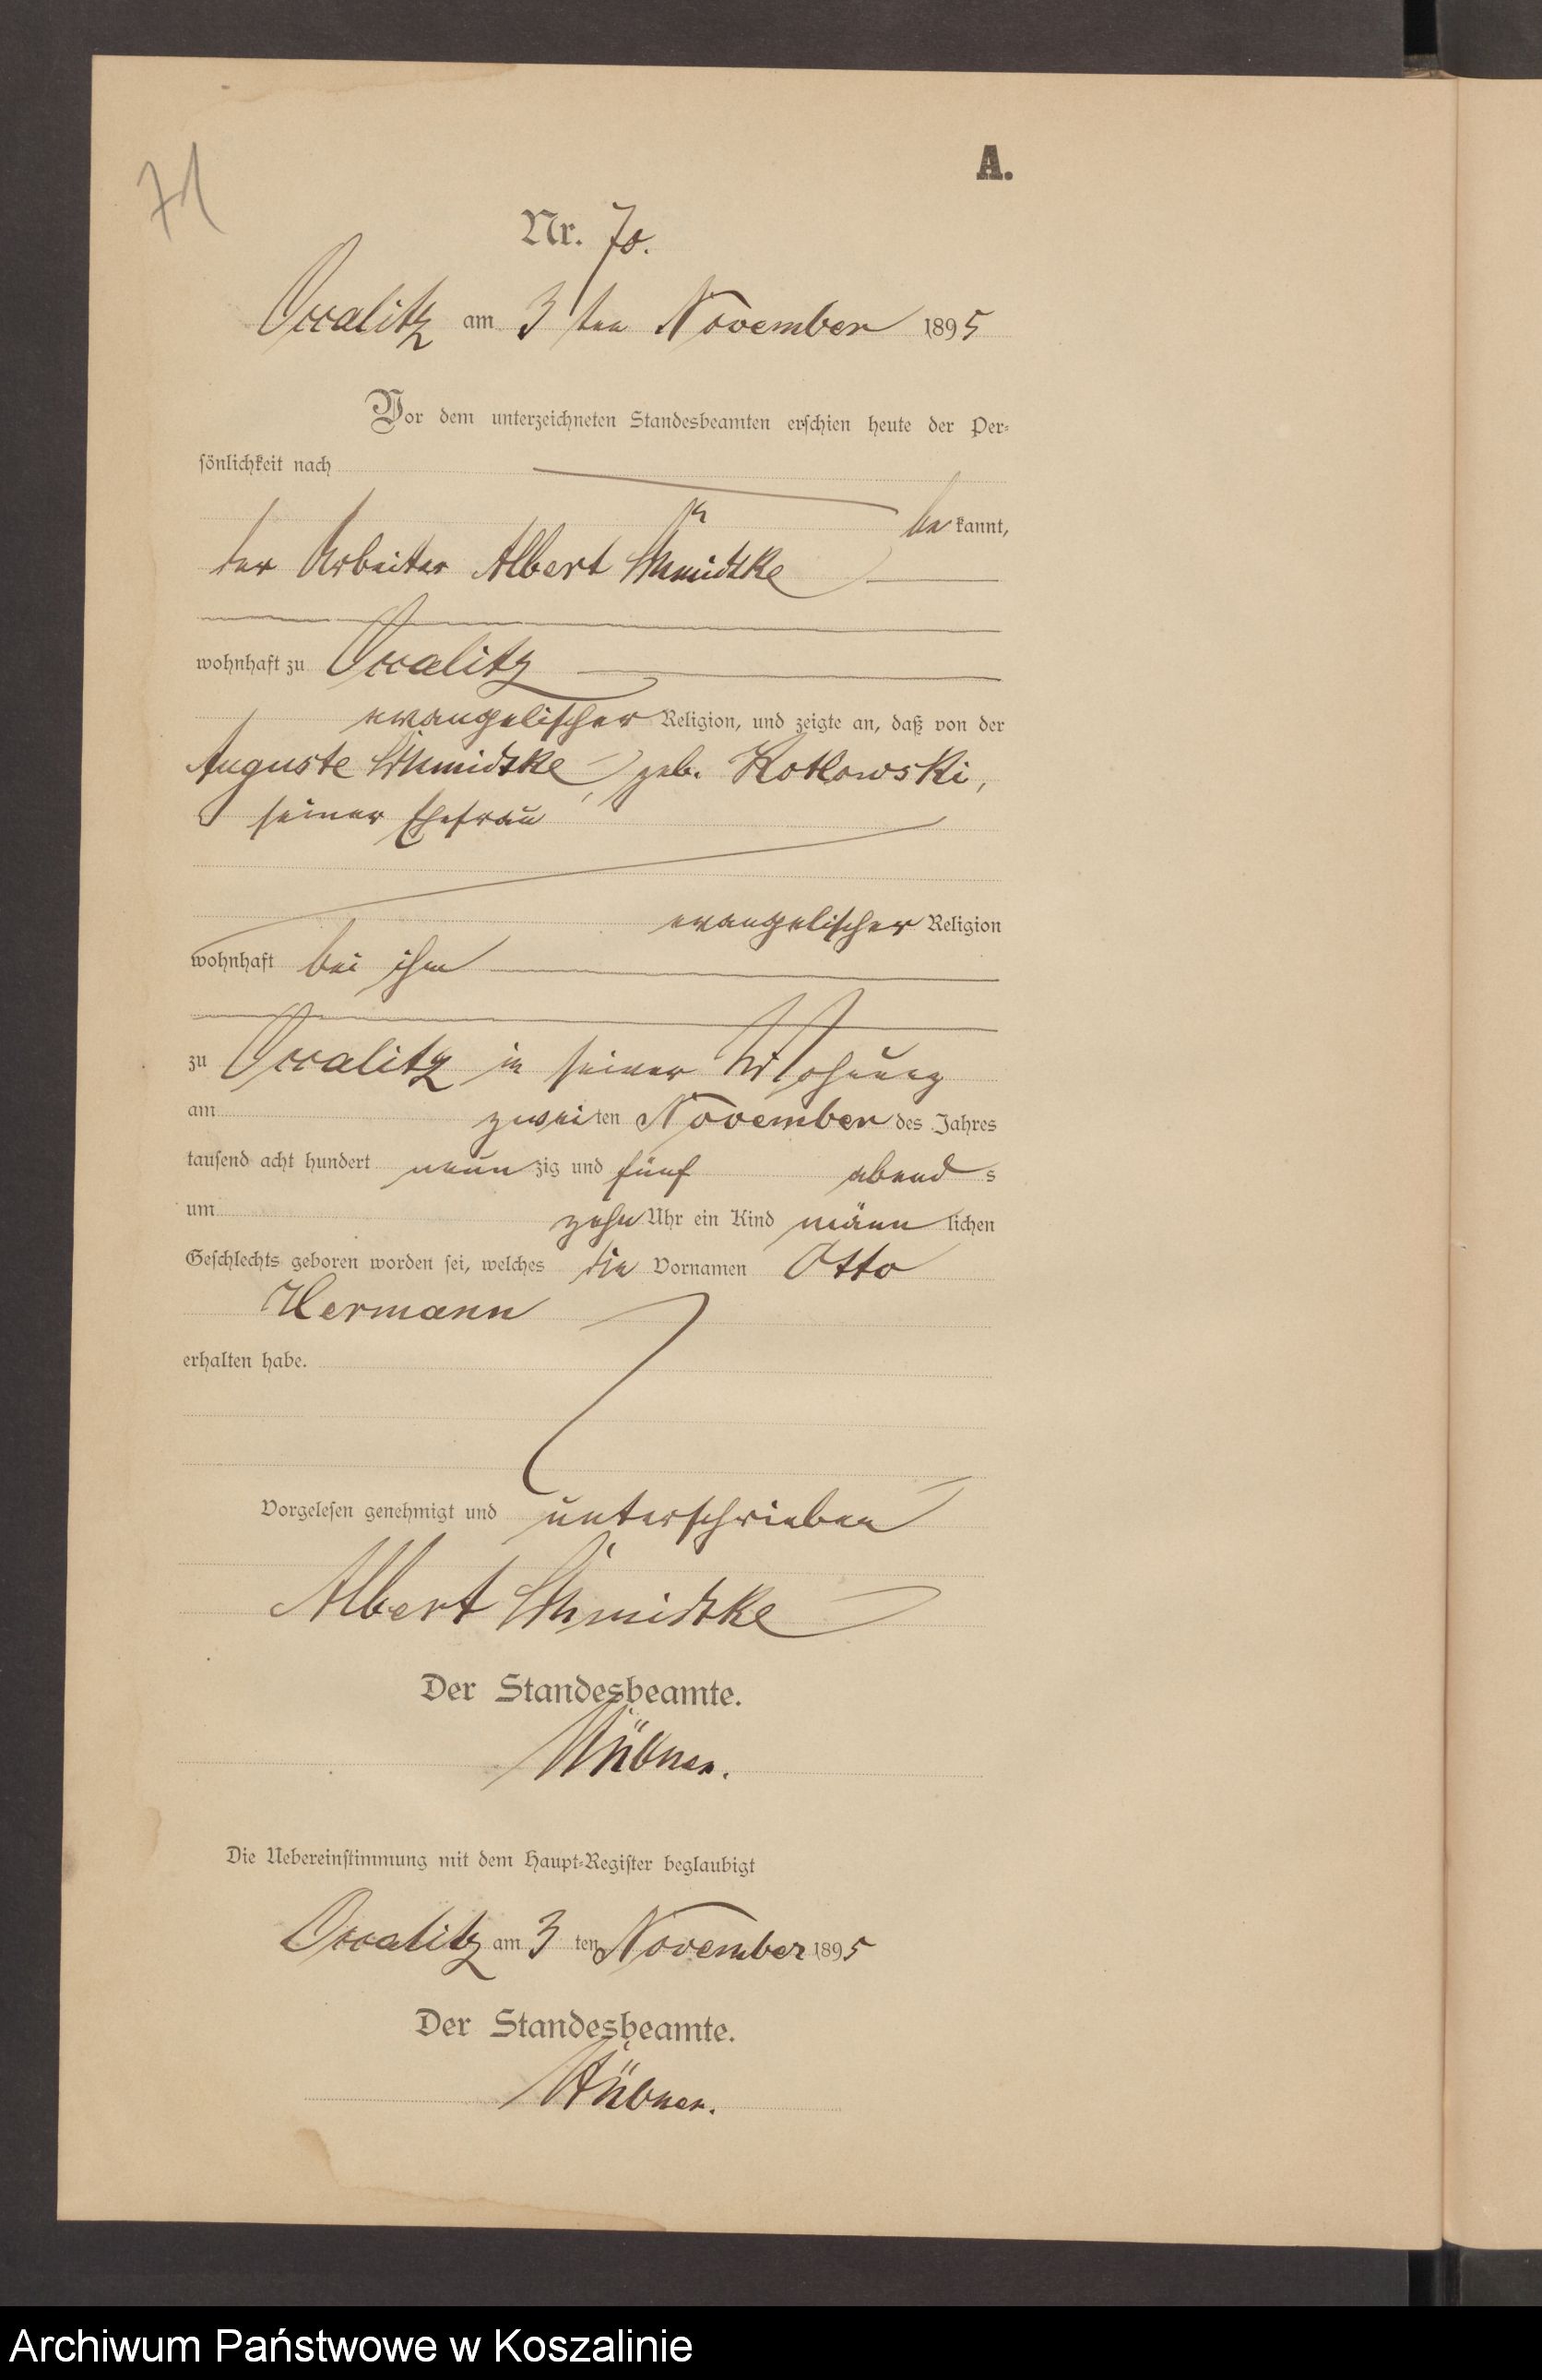 71
A.
Nr. 70.
Occalitz am 3ten November 1895
Vor dem unterzeichneten Standesbeamten erschien heute der Per-
sönlichkeit nach
bekannt,
der Arbeiter Albert Schmidtke
wohnhaft zu Occalitz
evangelischer Religion, und zeigte an, daß von der
Auguste Schmidtke, geb. Kotlowski,
seiner Ehefrau
evangelischer Religion
wohnhaft bei ihm
zu Occalitz in seiner Wohnung
am zweiten November des Jahres
tausend acht hundert neunzig und fünf abends
um zehn Uhr ein Kind männlichen
Geschlechts geboren worden sei, welches die Vornamen Otto
Hermann
erhalten habe.
Vorgelesen genehmigt und unterschrieben
Albert Schmidtke
Der Standesbeamte.
Hübner.
Die Uebereinstimmung mit dem Haupt-Register beglaubigt
Occalitz am 3ten November 1895
Der Standesbeamte.
Hübner.
Archiwum Państwowe w Koszalinie